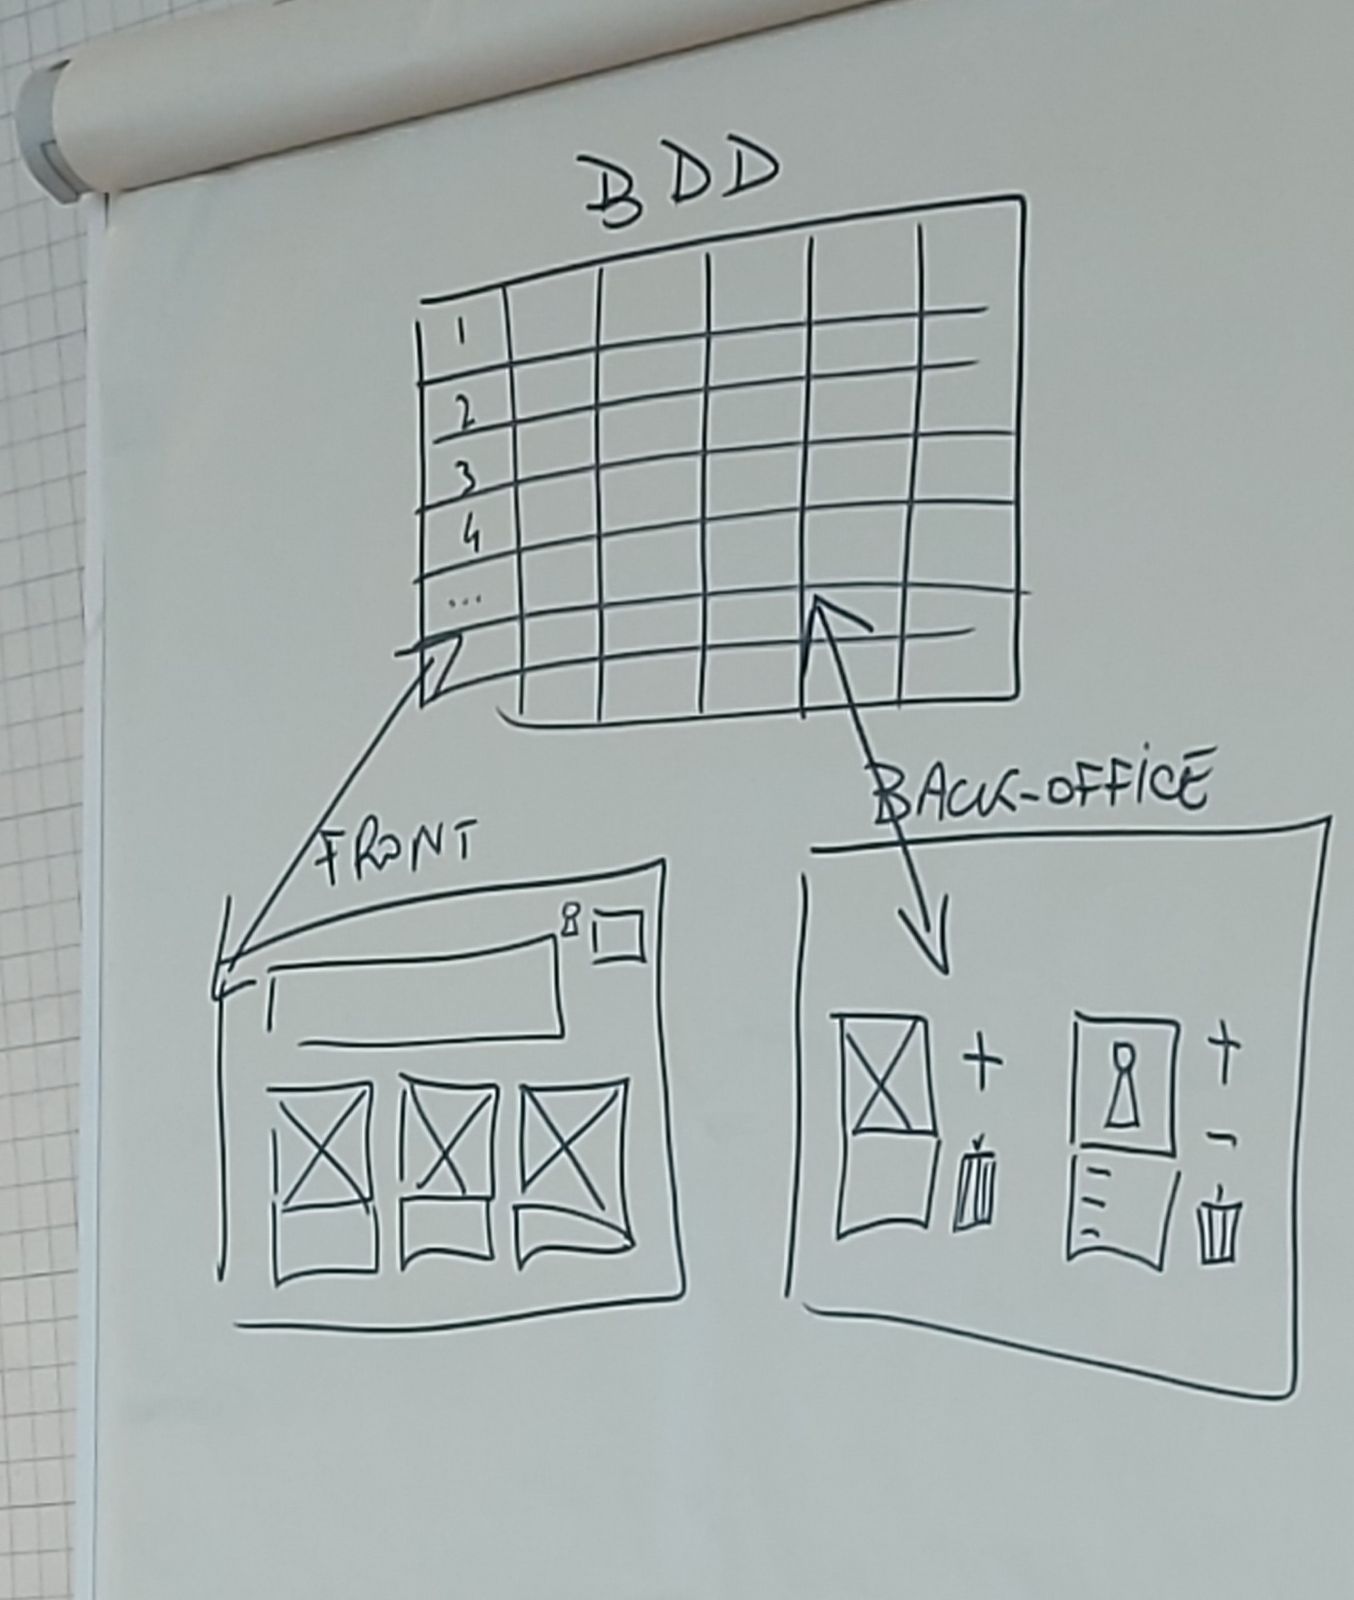 BDD
1
2
3
4
...
FRONT
BACK-OFFICE
+
+
-